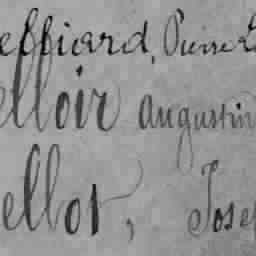 effiard, Pierre L
elloir Augustin
ellot, Jose